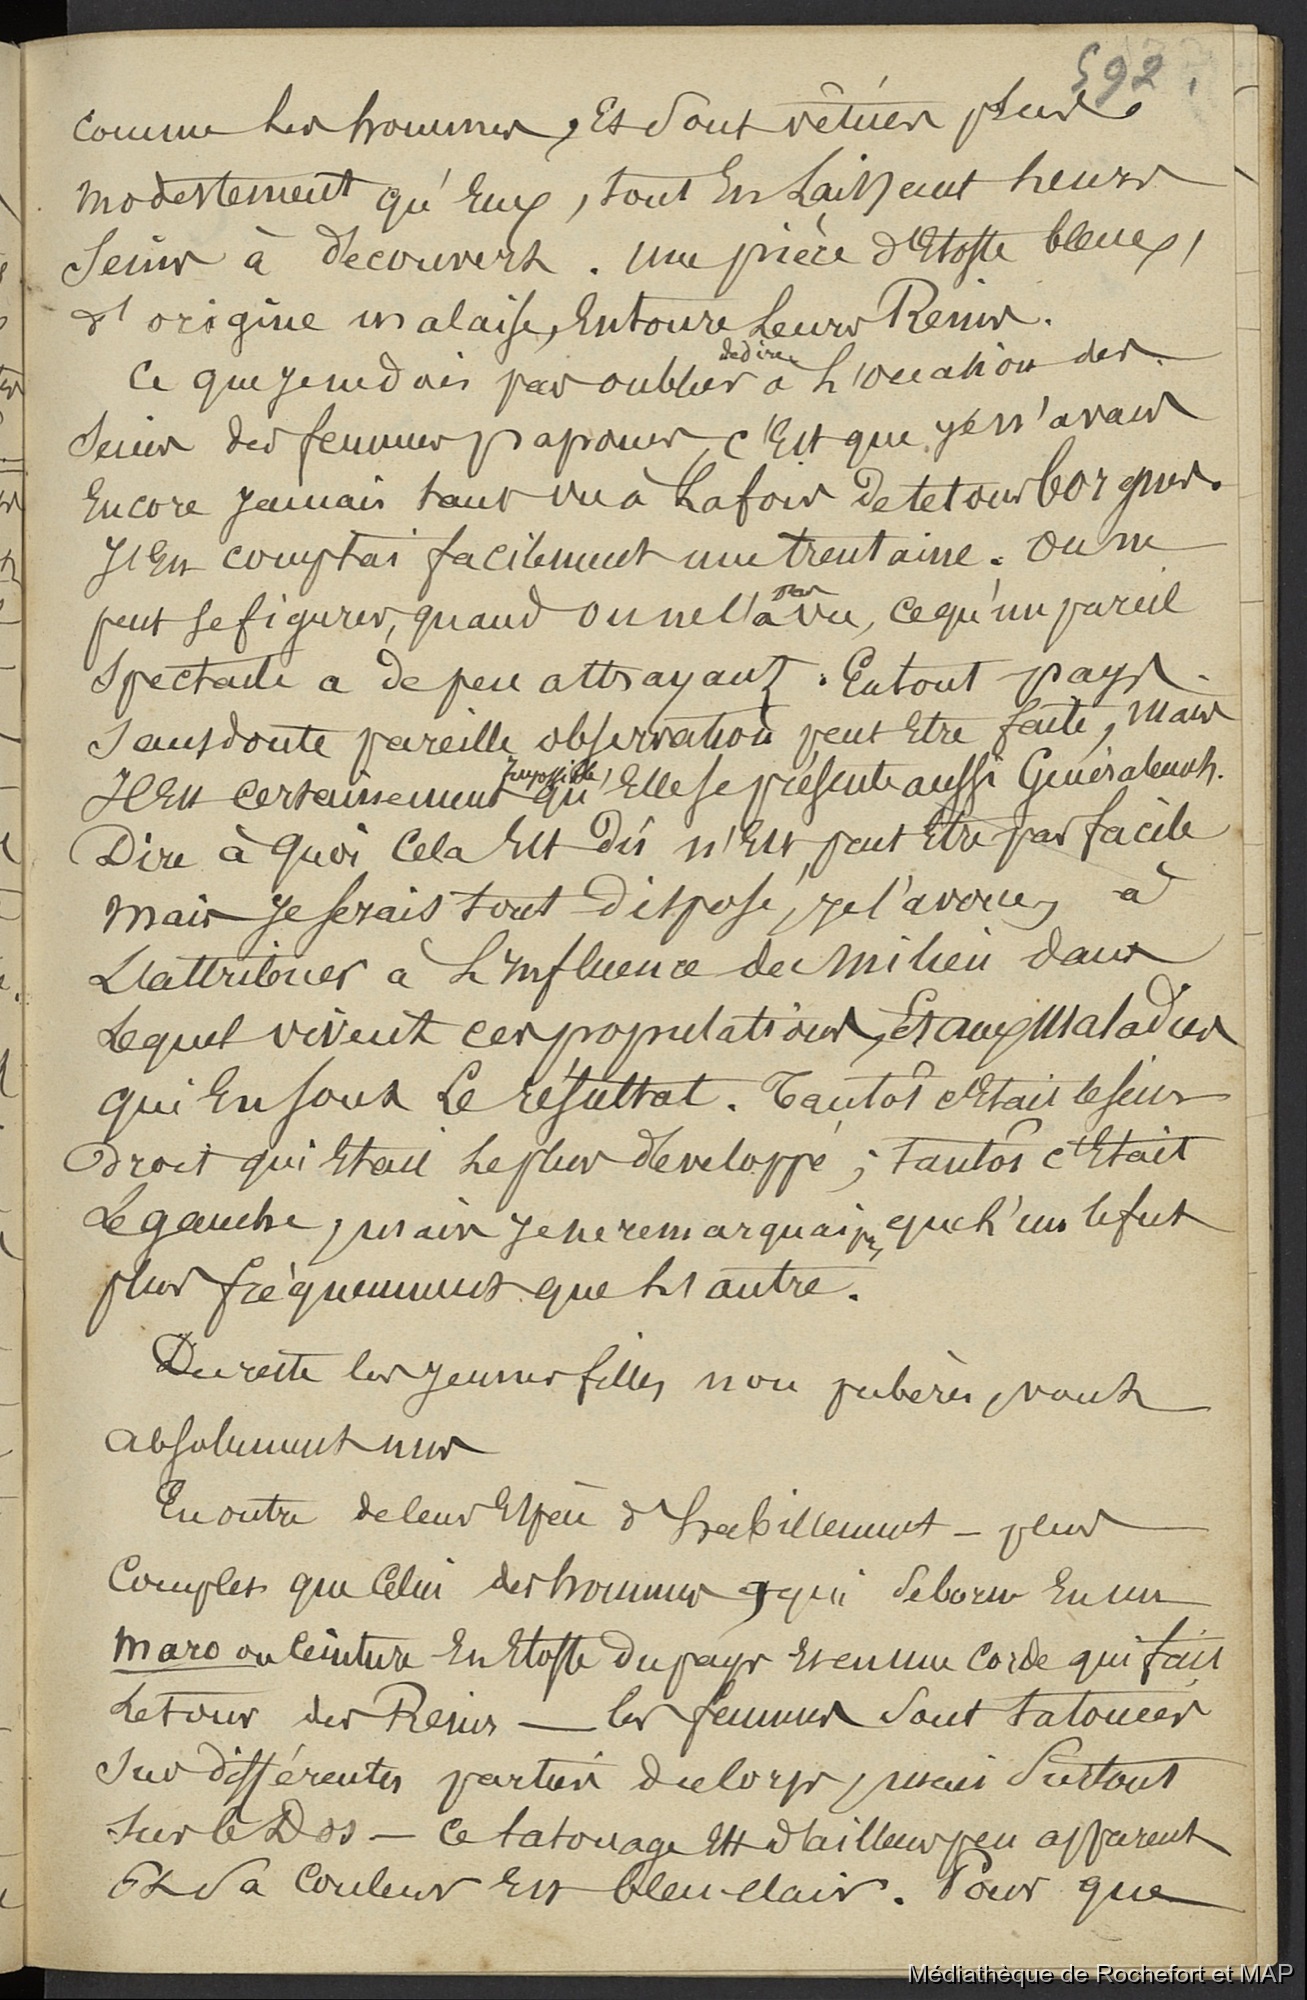 592.
comme les hommes, Et sont vêtues plus
modestement qu'Eux, tout En Laissant leurs
Seins à découvert. Une pièce d'Etoffe bleue,
d'origine malaise, Entoure Leurs Reins.
Ce que je ne dois pas oublier de dire à L'occasion des
Seins des femmes papoues, c'Est que je n'avais
Encore jamais tant vu à La fois de tetons borgnes.
J'En comptai facilement une trentaine. On ne
peut se figurer, quand on ne l'a pas vu, ce qu'un pareil
spectacle a de peu attrayant. En tout pays
sans doute pareille observation peut Etre faite, mais
Il Est certainement Impossible, qu'Elle se présente aussi Généralement.
Dire à quoi Cela Est Dû n'Est peut Etre pas facile
mais je serais tout disposé, je l'avoue, à
L'attribuer à L'Influence du milieu dans
Lequel vivent ces populations, Et aux Maladies
qui En sont Le résultat. Tantôt c'Etait le sein
droit qui Etait le plus développé ; tantôt c'Etait
Le gauche, mais je ne remarquai pas que l'un le fut
plus fréquemment que L'autre.
Du reste les jeunes filles non pubères, vont
absolument nues
En outre de leur Espèce d'habillement – plus
Complet que Celui des hommes, qui se borne En un
maro ou Ceinture En Etoffe du pays Et en une corde qui fait
Le tour des Reins — les femmes sont tatouées
sur différentes parties du corps, mais Surtout
Sur le Dos – Ce tatouage Est d'ailleurs peu apparent
Et sa couleur Est bleu-clair. Pour que
Médiathèque de Rochefort et MAP